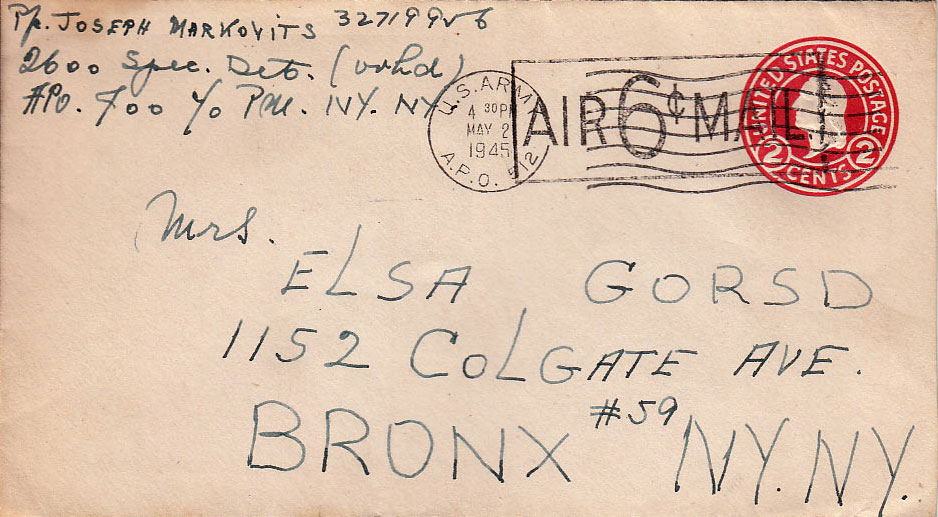 JOSEPH MARKOVITS
2600 Spec. Det. (ovhd)
APO. 700 c/o P.M. NY. NY
U.S. ARMY
4 30PM
MAY 2
1945
A.P.O. 512
AIR 6¢ MAIL
UNITED STATES POSTAGE
2 CENTS 2
Mrs.
ELSA GORSD
1152 COLGATE AVE.
#59
BRONX NY. NY.